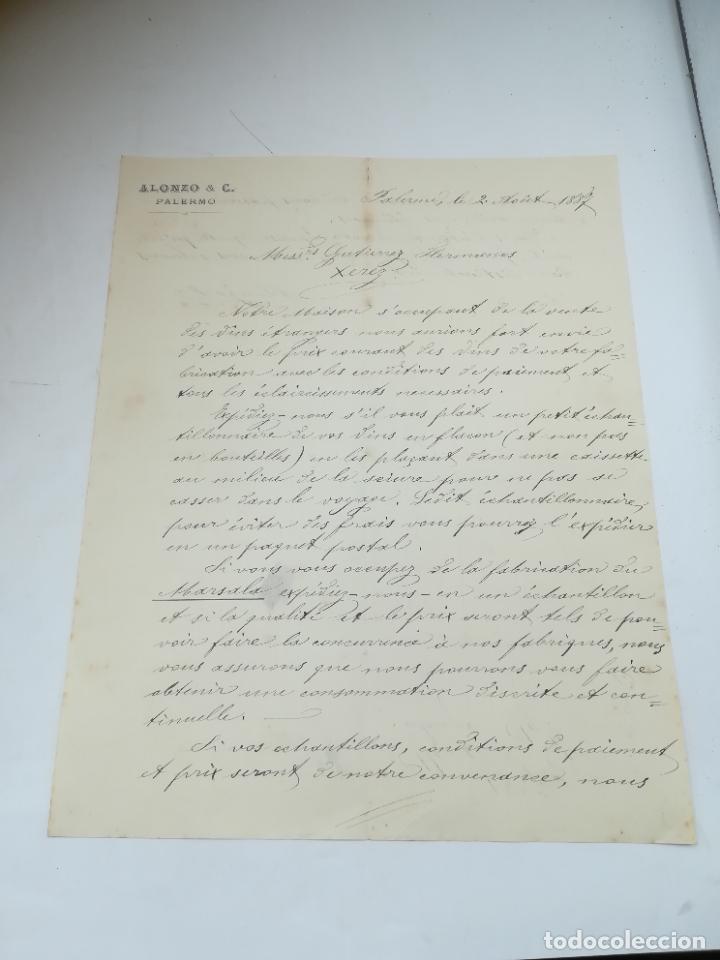 ALONZO & C.
PALERMO
Palerme, le 2 Août 1887
Mess.rs Gutierrez Hermanos
Xerez.
Notre Maison s'occupant de la vente
des vins étrangers nous aurions fort envie
d'avoir le prix courant des vins de votre fa=
brication avec les conditions de paiement et
tous les éclaircissements necessaires.
Expédiez-nous s'il vous plait un petit échan=
tillonnaire de vos vins en flacon (et non pas
en bouteilles) en les plaçant dans une caissette
au milieu de la sciure pour ne pas se
casser dans le voyage. Ledit échantillonnaire,
pour éviter des frais vous pourrez l'expédier
en un paquet postal.
Si vous vous occupez de la fabrication du
Marsala expédiez-nous-en un échantillon
et si la qualité et le prix seront tels de pou=
voir faire la concurrence à nos fabriques, nous
vous assurons que nous pourrons vous faire
obtenir une consommation discrète et con=
tinuelle. —
Si vos échantillons, conditions de paiement
et prix seront de notre convenance, nous
todocoleccion
todocoleccion.net